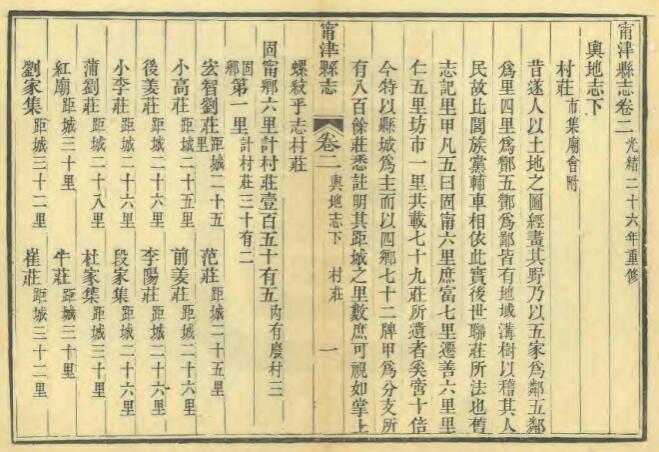 甯津縣志卷二光緒二十六年重修
輿地志下
村莊市集廟會附
昔遂人以土地之圖經畫其野乃以五家爲鄰五鄰
爲里四里爲酇五酇爲鄙皆有地域溝樹以稽其人
民故比閭族黨輔車相依此實後世聯莊所法也舊
志記里甲凡五曰固甯六里庶富七里遷善六里里
仁五里坊市一里共載七十九莊所遺者奚啻十倍
今特以縣城爲主而以四鄉七十二牌甲爲分支所
有八百餘莊悉註明其距城之里數庶可視如掌上
甯津縣志
卷二
輿地志下
村莊
一
螺紋乎志村莊
固甯鄉六里計村莊壹百五十有五內有廢村三
固鄉第一里計村莊三十有二
宏智劉莊距城二十五里
范莊距城二十五里
小高莊距城二十五里
前姜莊距城二十六里
後姜莊距城二十六里
李陽莊距城二十六里
小李莊距城二十六里
段家集距城二十六里
蒲劉莊距城二十八里
杜家集距城三十里
紅廟距城三十里
牛莊距城三十里
劉家集距城三十二里
崔莊距城三十二里